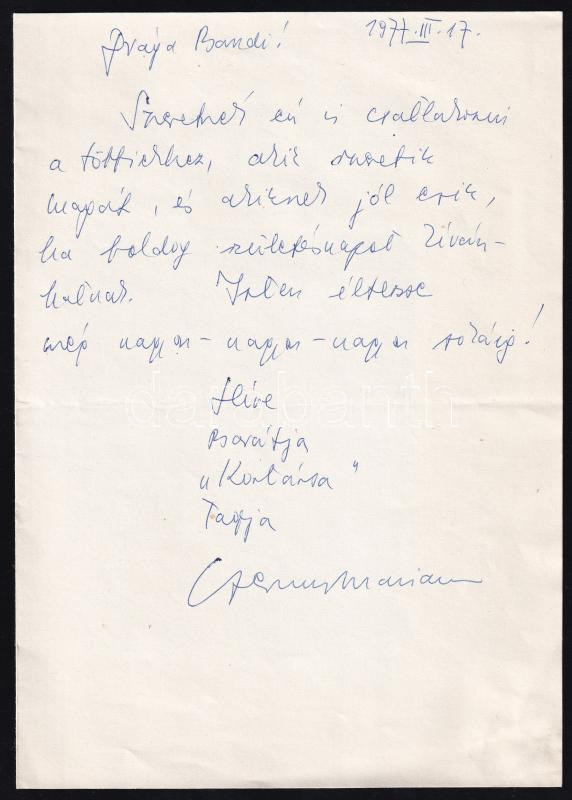 1977.III.17.
Drága Bandi!
Szeretnék én is csatlakozni
a többiekhez, akik szeretik
magát, és akiknek jól esik,
ha boldog születésnapot kíván-
hatnak. Isten éltesse
még nagyon-nagyon-nagyon sokáig!
Híve
Barátja
"Kortársa"
Tagja
Csernus Mariann
darabanth